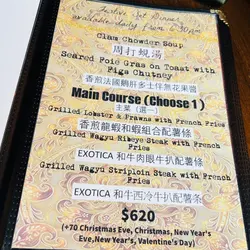 Festive Set Dinner
available daily from 6:30pm
Clam Chowder Soup
周打蜆湯
Seared Foie Gras on Toast with
Figs Chutney
香煎法國鵝肝多士伴無花果醬
Main Course (Choose 1)
主菜（選一）
Grilled Lobster & Prawns with French Fries
香煎龍蝦和蝦組合配薯條
Grilled Wagyu Ribeye Steak with French Fries
EXOTICA 和牛肉眼牛扒配薯條
Grilled Wagyu Striploin Steak with French Fries
EXOTICA 和牛西冷牛扒配薯条
$620
(+70 Christmas Eve, Christmas, New Year's
Eve,New Year's, Valentine's Day)